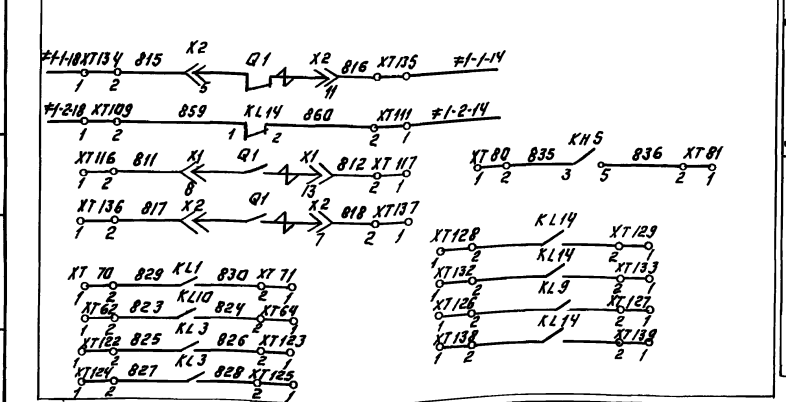 ≠1-1-18 XT134 815 X2 Q1 X2 816 XT135 ≠1-1-14
1 2 5 11 1
≠1-2-18 XT109 859 KL14 860 XT111 ≠1-2-14
1 2 1 2 2 1
XT116 811 X1 Q1 X1 812 XT117
1 2 8 13 2 1
XT136 817 X2 Q1 X2 818 XT137
1 2 7 2 1
XT 70 829 KL1 830 XT 71
1 2 2 1
XT62 823 KL10 824 XT64
1 2 2 1
XT122 825 KL3 826 XT123
1 2 2 1
XT124 827 KL3 828 XT125
1 2 2 1
XT80 835 KH5 836 XT81
1 2 3 5 2 1
XT128 KL14 XT129
1 2 2 1
XT132 KL14 XT133
1 2 2 1
XT126 KL9 XT127
1 2 2 1
XT138 KL14 XT139
1 2 2 1